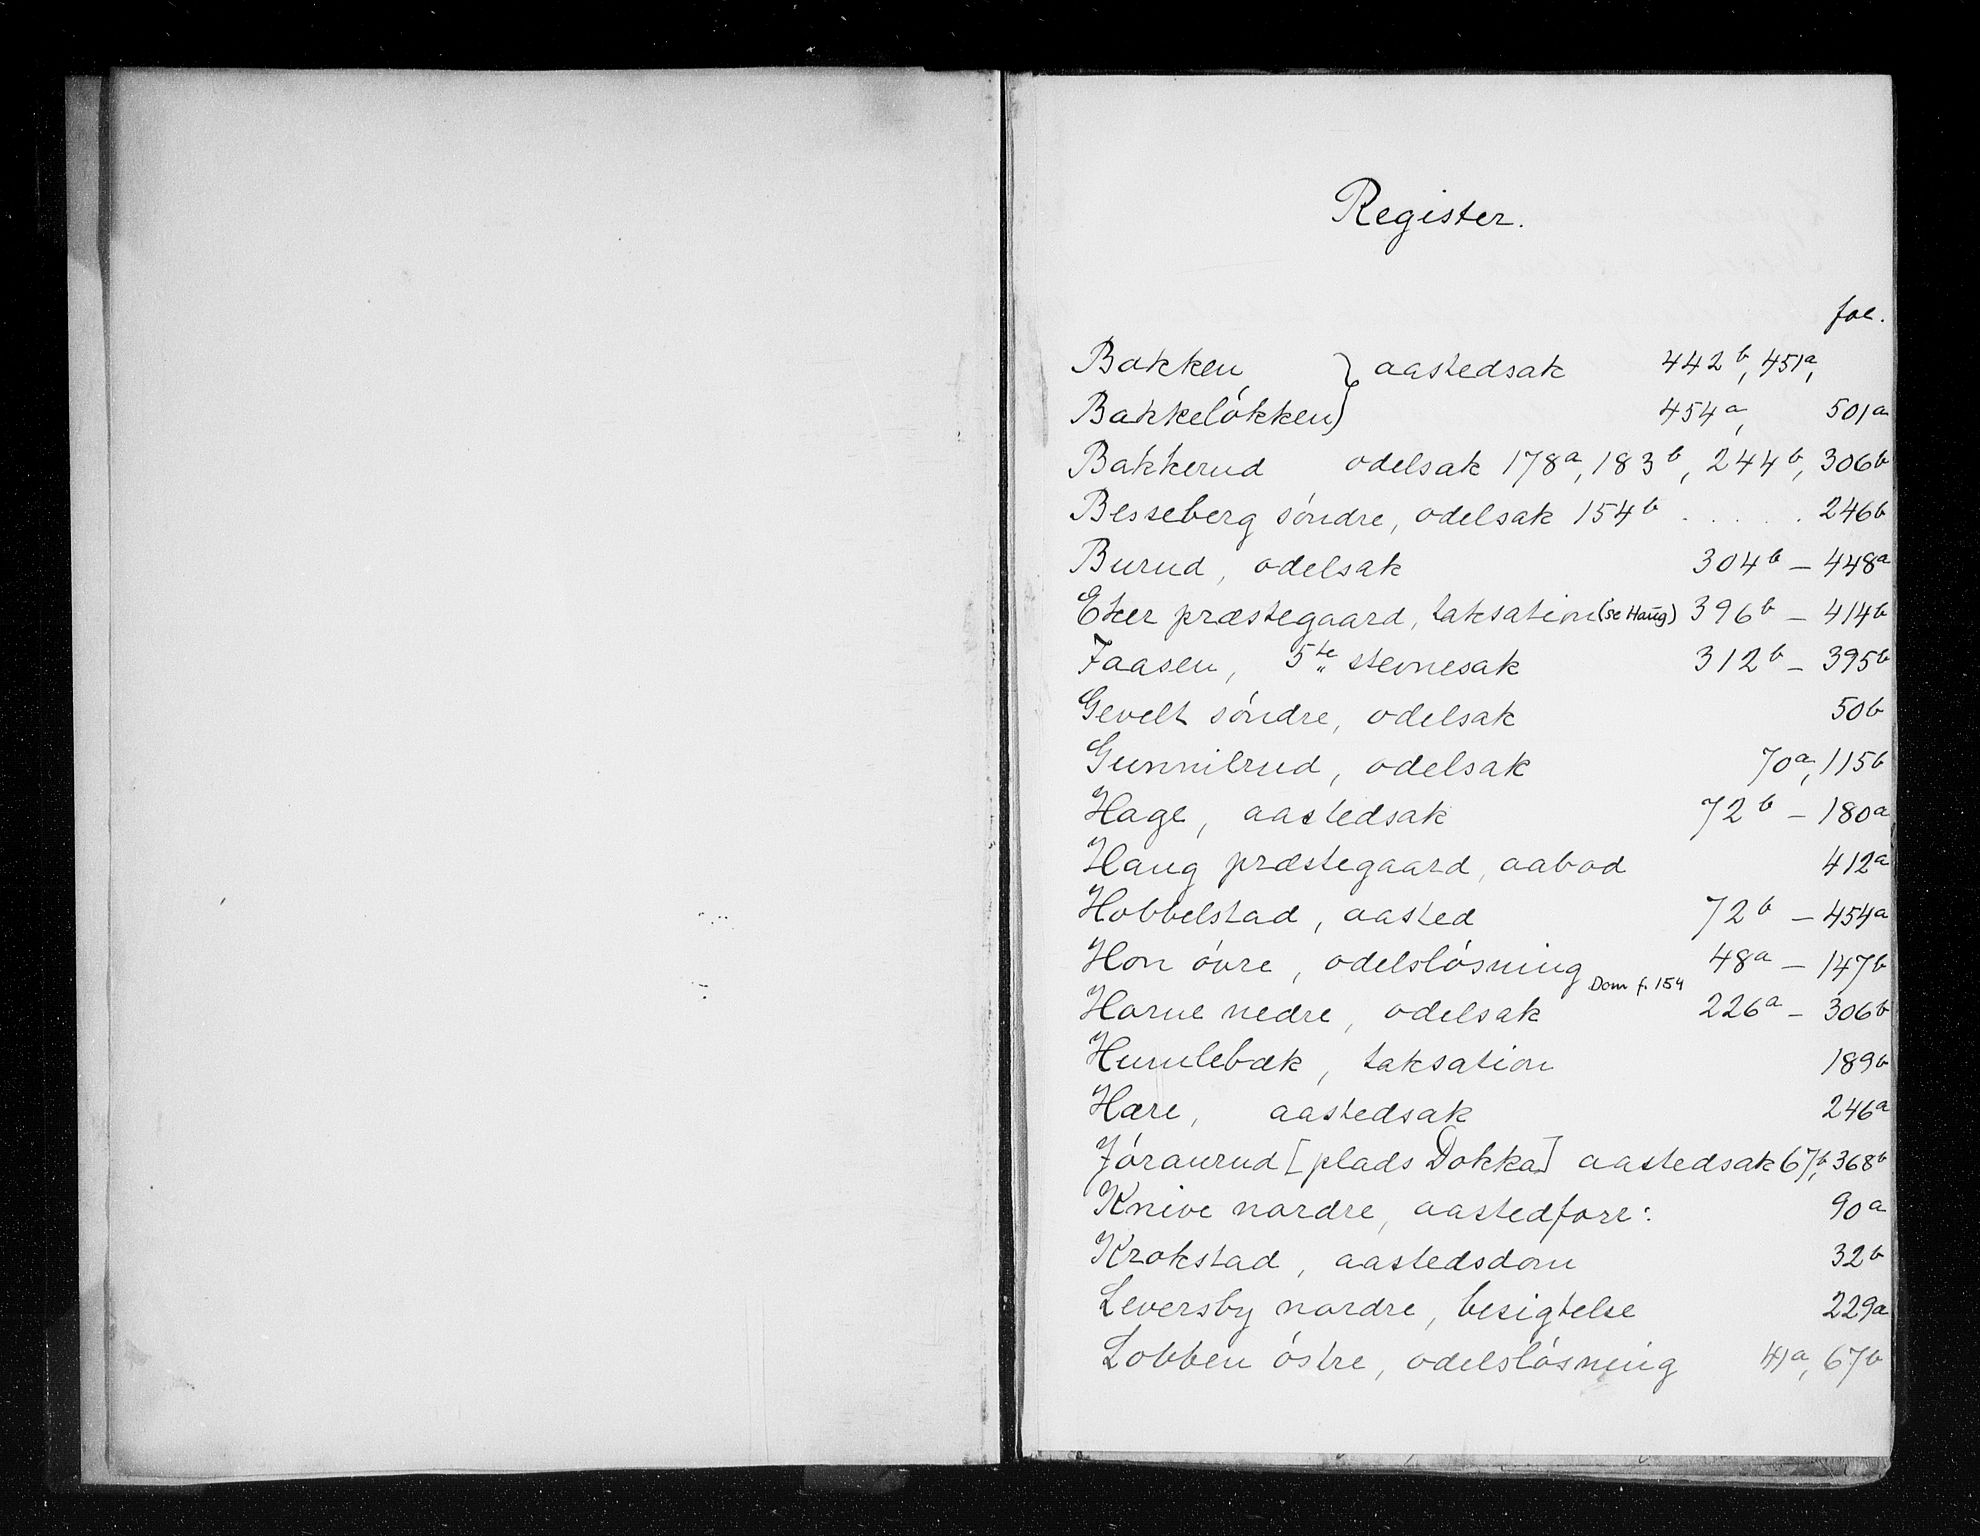 Register.
fol.
Bakken } aastedsak 442b, 451a,
Bakkeløkken } 454a, 501a
Bakkerud odelsak 178a, 183b, 244b, 306b
Besseberg søndre, odelsak 154b . . . . . 246b
Burud, odelsak 304b – 448a
Eker præstegaard, taksation (se Haug) 396b – 414b
Faasen, 5te stevnesak 312b – 395b
Gevelt søndre, odelsak 50b
Gunnilrud, odelsak 70a, 115b
Hage, aastedsak 72b – 180a
Haug præstegaard, aabod 412a
Hobbelstad, aasted 72b – 454a
Hon øvre, odelsløsning 48a – 147b
Dom f. 154
Horne nedre, odelsak 226a – 306b
Humlebæk, taksation 189b
Hære, aastedsak 246a
Jøranrud [plads Dokka] aastedsak 67b, 368b
Knive nordre, aastedforr: 90a
Krokstad, aastedsdom 32b
Leversby nordre, besigtelse 229a
Lobben østre, odelsløsning 41a, 67b